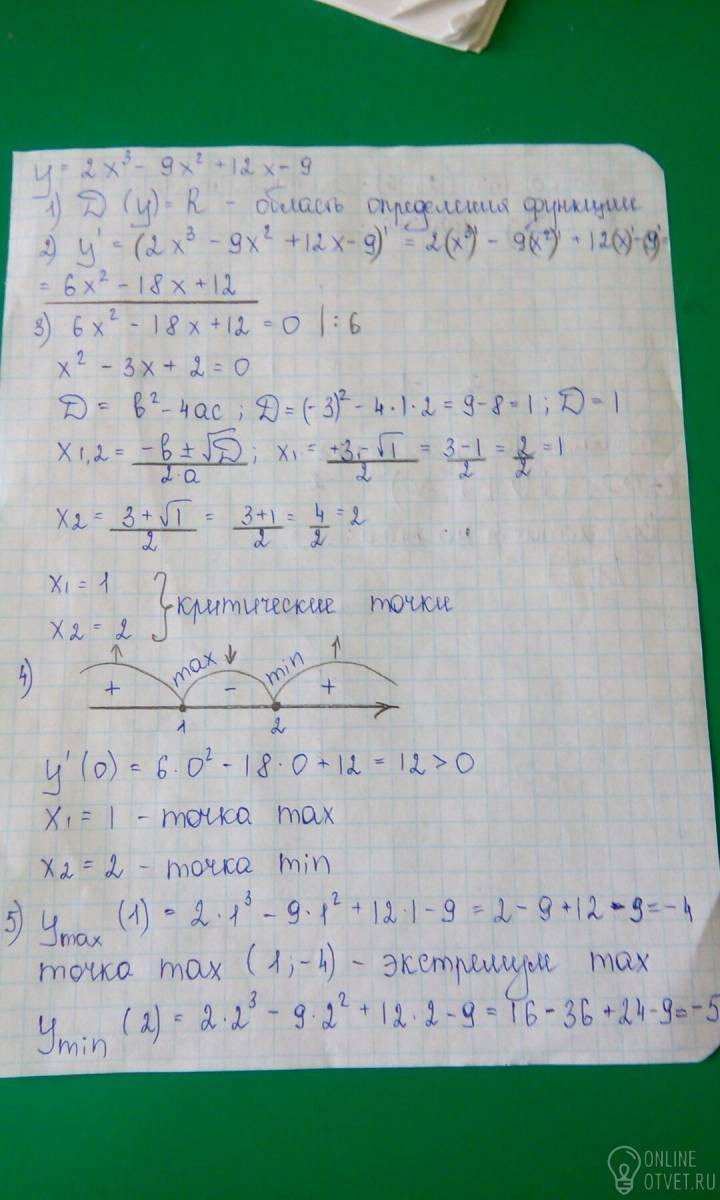 y = 2x³ - 9x² + 12x - 9
1) D (y) = R - область определения функции
2) y' = (2x³ - 9x² + 12x - 9)' = 2(x³)' - 9(x²)' + 12(x)' - (9)' =
= 6x² - 18x + 12
3) 6x² - 18x + 12 = 0 | : 6
x² - 3x + 2 = 0
D = b² - 4ac ; D = (-3)² - 4·1·2 = 9 - 8 = 1 ; D = 1
x1,2 = (-b ± √D)/(2·a) ; x1 = (+3 - √1)/2 = (3-1)/2 = 2/2 = 1
x2 = (3 + √1)/2 = (3+1)/2 = 4/2 = 2
x1 = 1
x2 = 2 } критические точки
4) ↑ max ↓ min ↑
+ - +
1 2
y' (0) = 6·0² - 18·0 + 12 = 12 > 0
x1 = 1 - точка max
x2 = 2 - точка min
5) ymax (1) = 2·1³ - 9·1² + 12·1 - 9 = 2 - 9 + 12 - 9 = -4
точка max (1; -4) - экстремум max
ymin (2) = 2·2³ - 9·2² + 12·2 - 9 = 16 - 36 + 24 - 9 = -5
ONLINE
OTVET.RU